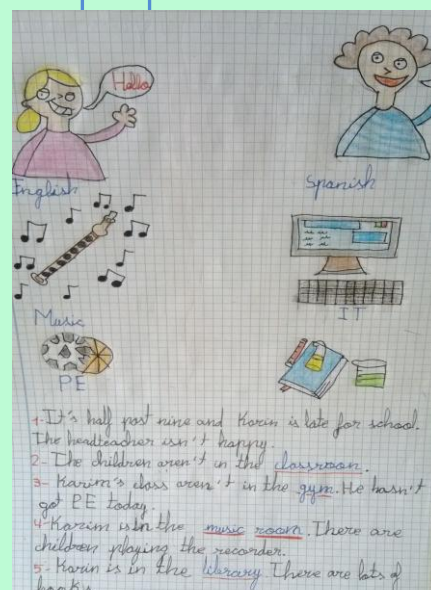 Hello
English
Spanish
Music
IT
PE
1-It's half past nine and Karim is late for school.
The headteacher isn't happy.
2- The children aren't in the classroom.
3- Karim's class aren't in the gym. He hasn't
got PE today.
4-Karim is in the music room. There are
children playing the recorder.
5- Karim is in the library. There are lots of
books